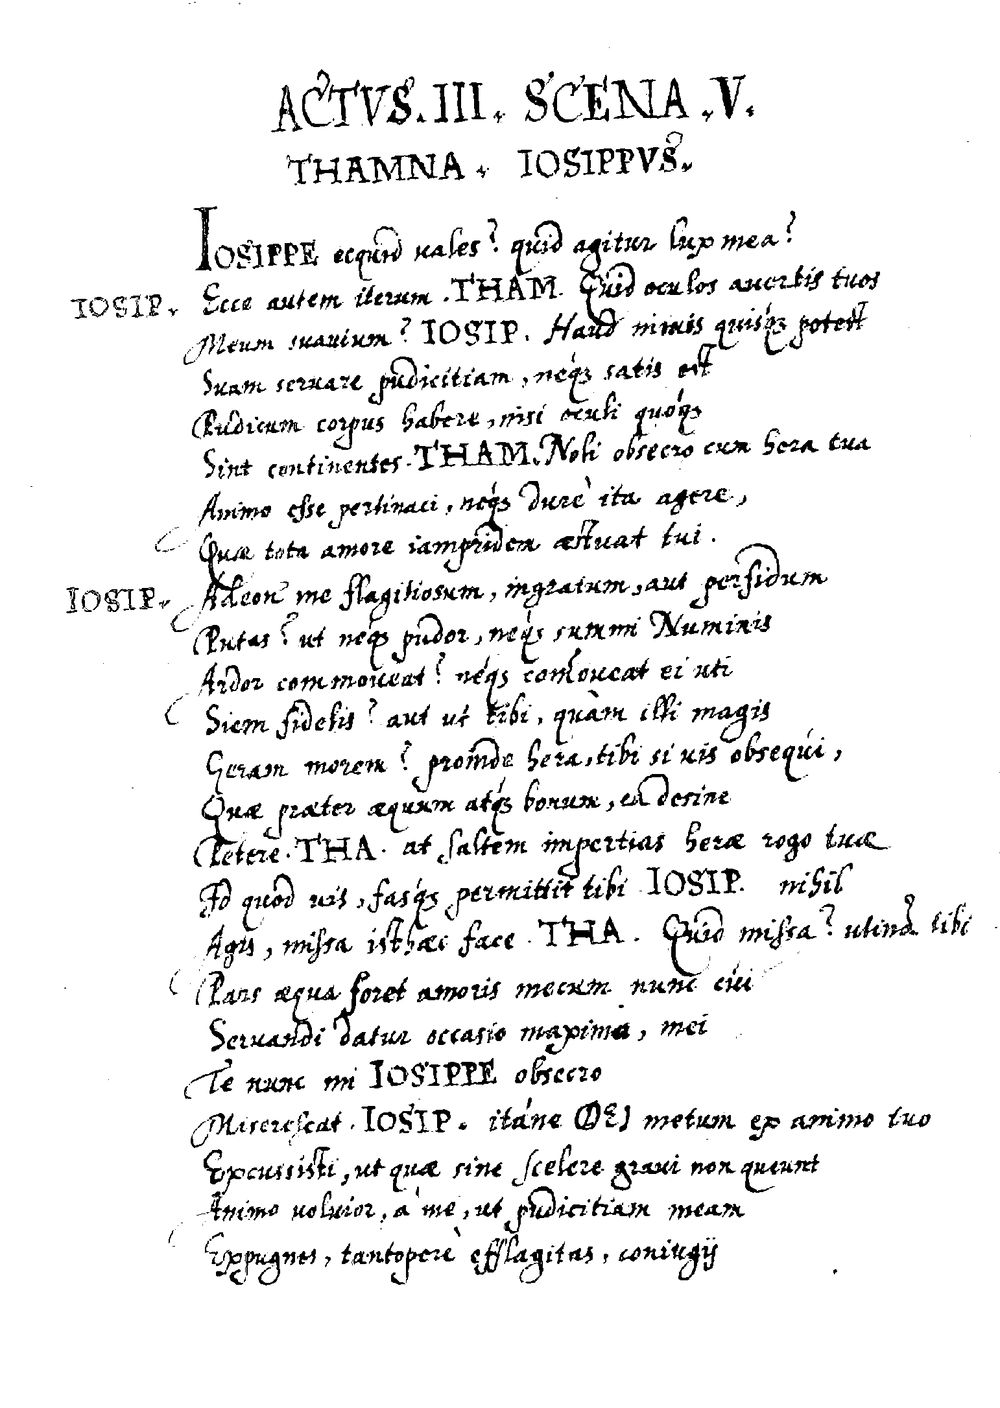 ACTVS. III. SCENA .V.
THAMNA. IOSIPPVS.
IOSIPPE ecquid uales? quid agitur lux mea?
IOSIP. Ecce autem iterum. THAM. Quid oculos auertis tuos
Meum suauium? IOSIP. Haud nimis quisq́ȝ potest
Suam seruare pudicitiam, neq́ȝ satis est
Pudicum corpus habere, nisi oculi quoq́ȝ
Sint continentes. THAM. Noli obsecro cum hera tua
Animo esse pertinaci, neq́ȝ durè ita agere,
Quæ tota amore iampridem æstuat tui.
IOSIP. Adeon' me flagitiosum, ingratum, aut perfidum
Putas? ut neq́ȝ pudor, neq́ȝ summi Numinis
Ardor commoueat? neq́ȝ com̃oueat ei uti
Siem fidelis? aut ut tibi, quàm illi magis
Geram morem? proinde hera, tibi si uis obsequi,
Quæ præter æquum atq́ȝ bonum, ea desine
Petere. THA. at saltem impertias heræ rogo tuæ
Id quod uis, fasq́ȝ permittit tibi IOSIP. nihil
Agis, missa isthæc face. THA. Quid missa? utinã tibi
Pars æqua foret amoris mecum nunc cui
Seruandi datur occasio maxima, mei
Te nunc mi IOSIPPE obsecro
Miserescat. IOSIP. itáne DEI metum ex animo tuo
Excussisti, ut quæ sine scelere graui non queunt
Animo uoluior, à me, ut pudicitiam meam
Expugnes, tantoperè efflagitas, coniugij